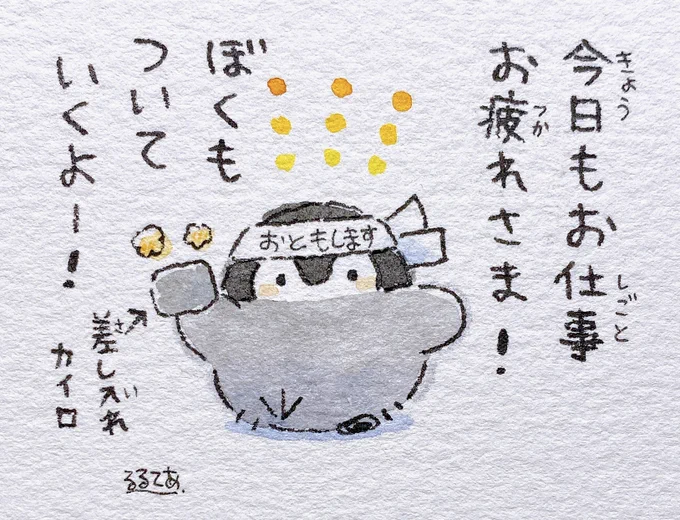 今日もお仕事
きょう
しごと
お疲れさま!
つか
ぼくも
ついて
いくよー!
おともします
差し入れ
さ
い
カイロ
るるてあ